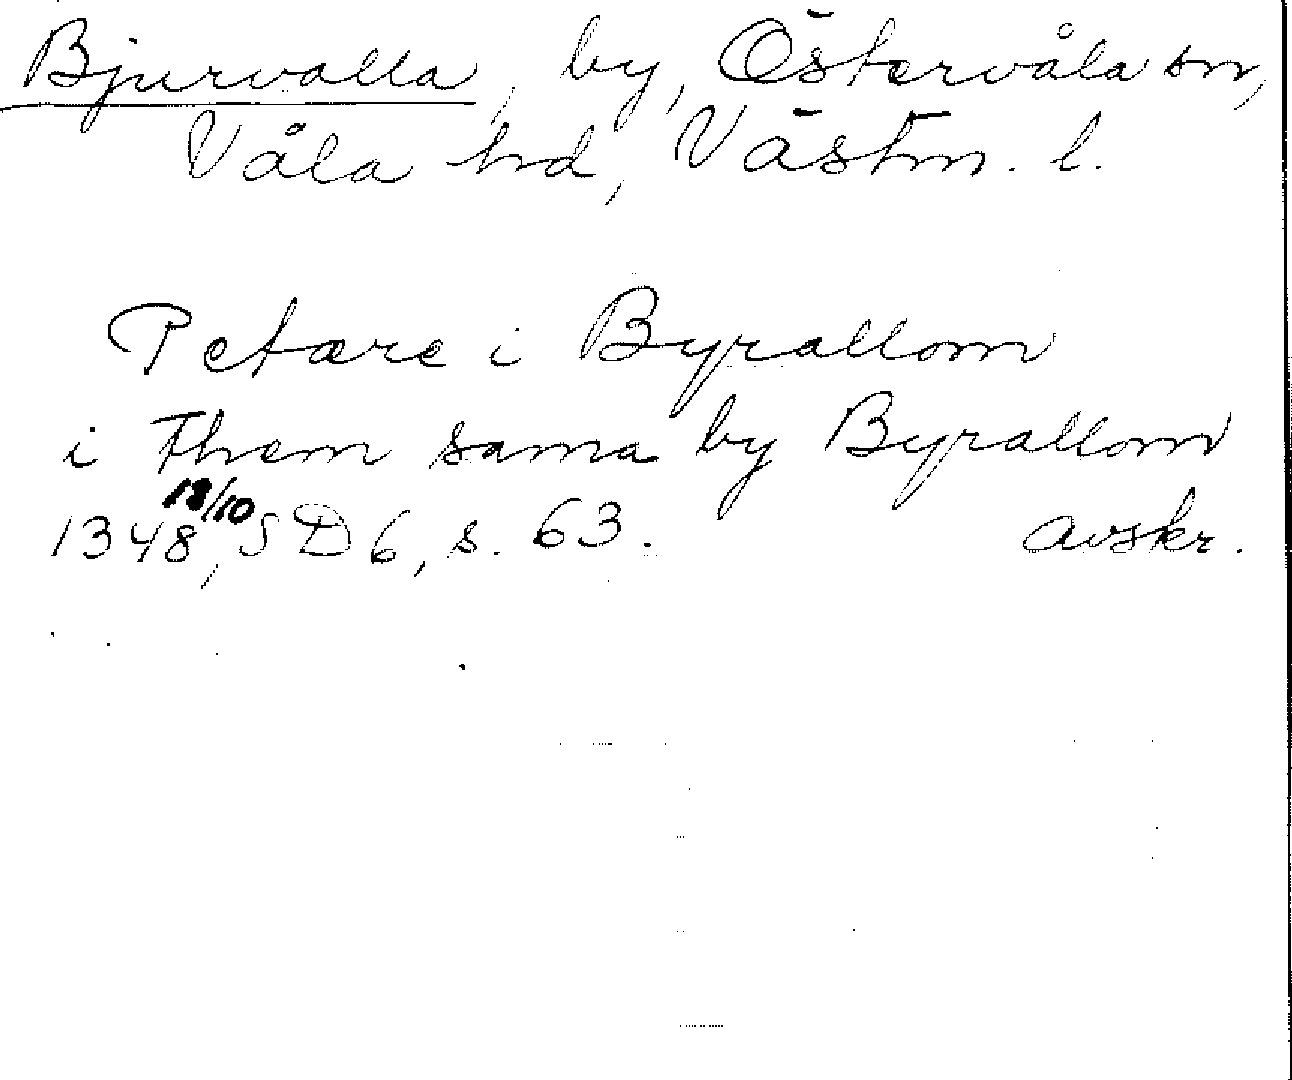 Bjurvalla, by, Östervåla sn,
Våla hd, Västm. l.
Petare i Byrallom
i them sama by Byrallom
1348 18/10, SD 6, s. 63. avskr.